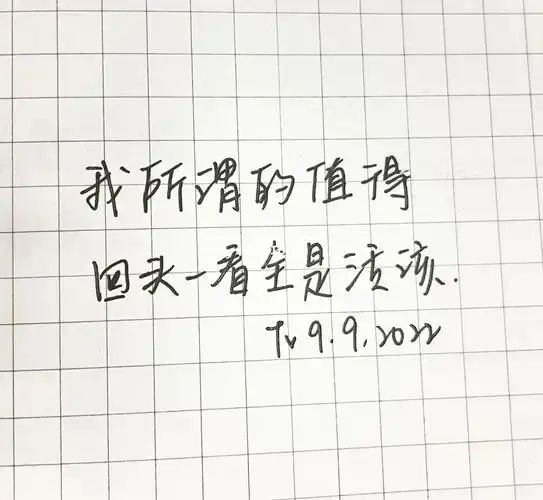 我所谓的值得
回头一看全是活该.
9.9.2022